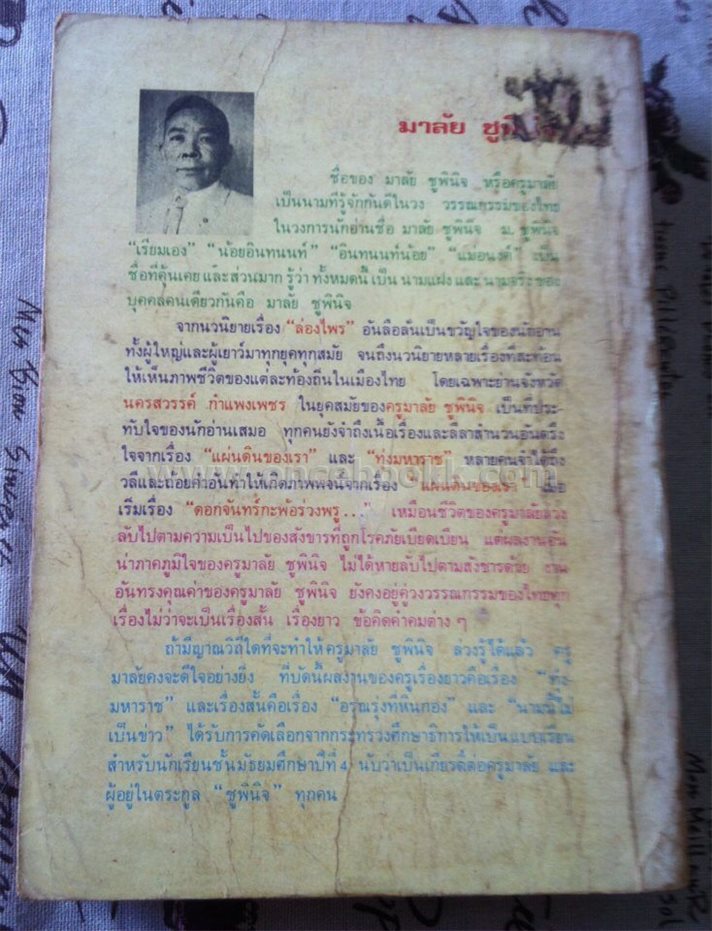 มาลัย ชูพินิจ
ชื่อของ มาลัย ชูพินิจ หรือครูมาลัย
เป็นนามที่รู้จักกันดีในวง วรรณกรรมของไทย
ในวงการนักอ่านชื่อ มาลัย ชูพินิจ ม. ชูพินิจ
“เรียมเอง” “น้อยอินทนนท์” “อินทนนท์น้อย” “แม่อนงค์” เป็น
ชื่อที่คุ้นเคย และส่วนมาก รู้ว่า ทั้งหมดนี้ เป็น นามแฝง และ นามจริง ของ
บุคคลคนเดียวกันคือ มาลัย ชูพินิจ
จากนวนิยายเรื่อง “ล่องไพร” อันลือลั่นเป็นขวัญใจของนักอ่าน
ทั้งผู้ใหญ่และผู้เยาว์มาทุกยุคทุกสมัย จนถึงนวนิยายหลายเรื่องที่สะท้อน
ให้เห็นภาพชีวิตของแต่ละท้องถิ่นในเมืองไทย โดยเฉพาะย่านจังหวัด
นครสวรรค์ กำแพงเพชร ในยุคสมัยของครูมาลัย ชูพินิจ เป็นที่ประ-
ทับใจของนักอ่านเสมอ ทุกคนยังจำถึงเนื้อเรื่องและลีลาสำนวนอันตรึง
ใจจากเรื่อง “แผ่นดินของเรา” และ “ทุ่งมหาราช” หลายคนจำได้ถึง
วลีและถ้อยคำอันทำให้เกิดภาพพจน์จากเรื่อง “แผ่นดินของเรา” เมื่อ
เริ่มเรื่อง “ดอกจันทร์กะพ้อร่วงพรู...” เหมือนชีวิตของครูมาลัยล่วง
ลับไปตามความเป็นไปของสังขารที่ถูกโรคภัยเบียดเบียน แต่ผลงานอัน
น่าภาคภูมิใจของครูมาลัย ชูพินิจ ไม่ได้หายลับไปตามสังขารดับัย งาน
อันทรงคุณค่าของครูมาลัย ชูพินิจ ยังคงอยู่คู่วงวรรณกรรมของไทยทุก
เรื่องไม่ว่าจะเป็นเรื่องสั้น เรื่องยาว ข้อคิดคำคมต่าง ๆ
ถ้ามีญาณวิถีใดที่จะทำให้ครูมาลัย ชูพินิจ ล่วงรู้ได้แล้ว ครู
มาลัยคงจะดีใจอย่างยิ่ง ที่บัดนี้ผลงานของครูเรื่องยาวคือเรื่อง “ทุ่ง-
มหาราช” และเรื่องสั้นคือเรื่อง “อรุณรุ่งที่หินกอง” และ “นามนี้ไม่
เป็นข่าว” ได้รับการคัดเลือกจากกระทรวงศึกษาธิการให้เป็นแบบเรียน
สำหรับนักเรียนชั้นมัธยมศึกษาปีที่ 4 นับว่าเป็นเกียรติต่อครูมาลัย และ
ผู้อยู่ในตระกูล “ชูพินิจ” ทุกคน